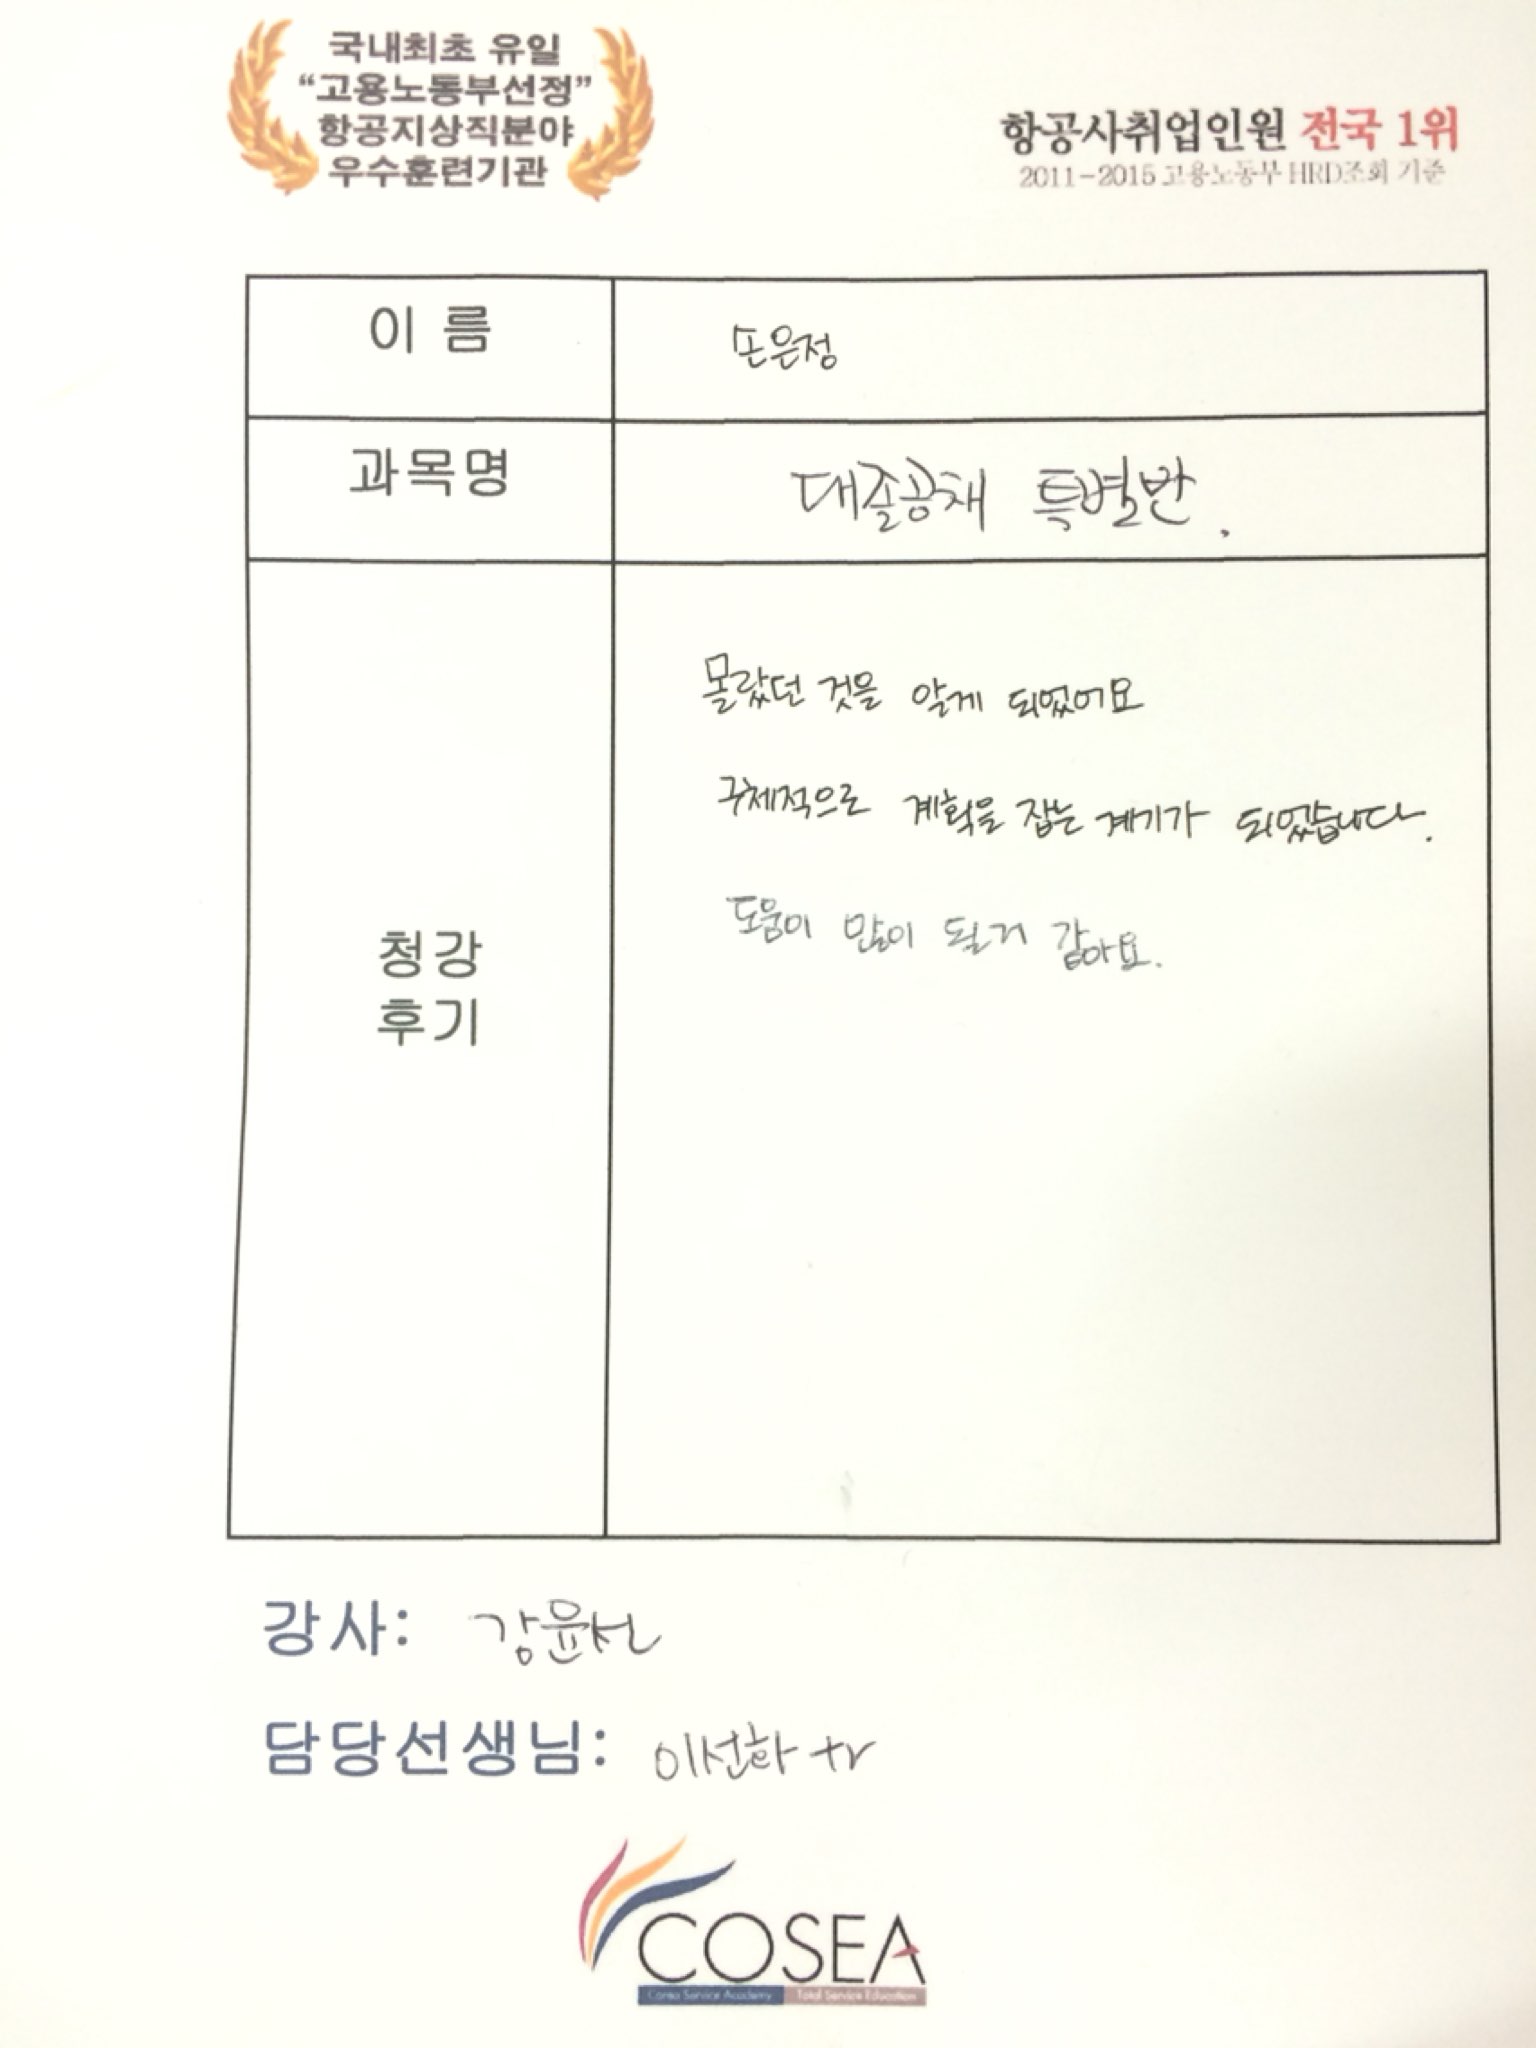 국내최초 유일
“고용노동부선정”
항공지상직분야
우수훈련기관
항공사취업인원 전국 1위
2011-2015 고용노동부 HRD조회 기준
이 름
손은정
과목명
대졸공채 특별반.
청강
후기
몰랐던 것을 알게 되었어요
구체적으로 계획을 잡는 계기가 되었습니다.
도움이 많이 될거 같아요.
강사: 강윤선
담당선생님: 이선하 tr
COSEA
Corea Service Academy Total Service Education